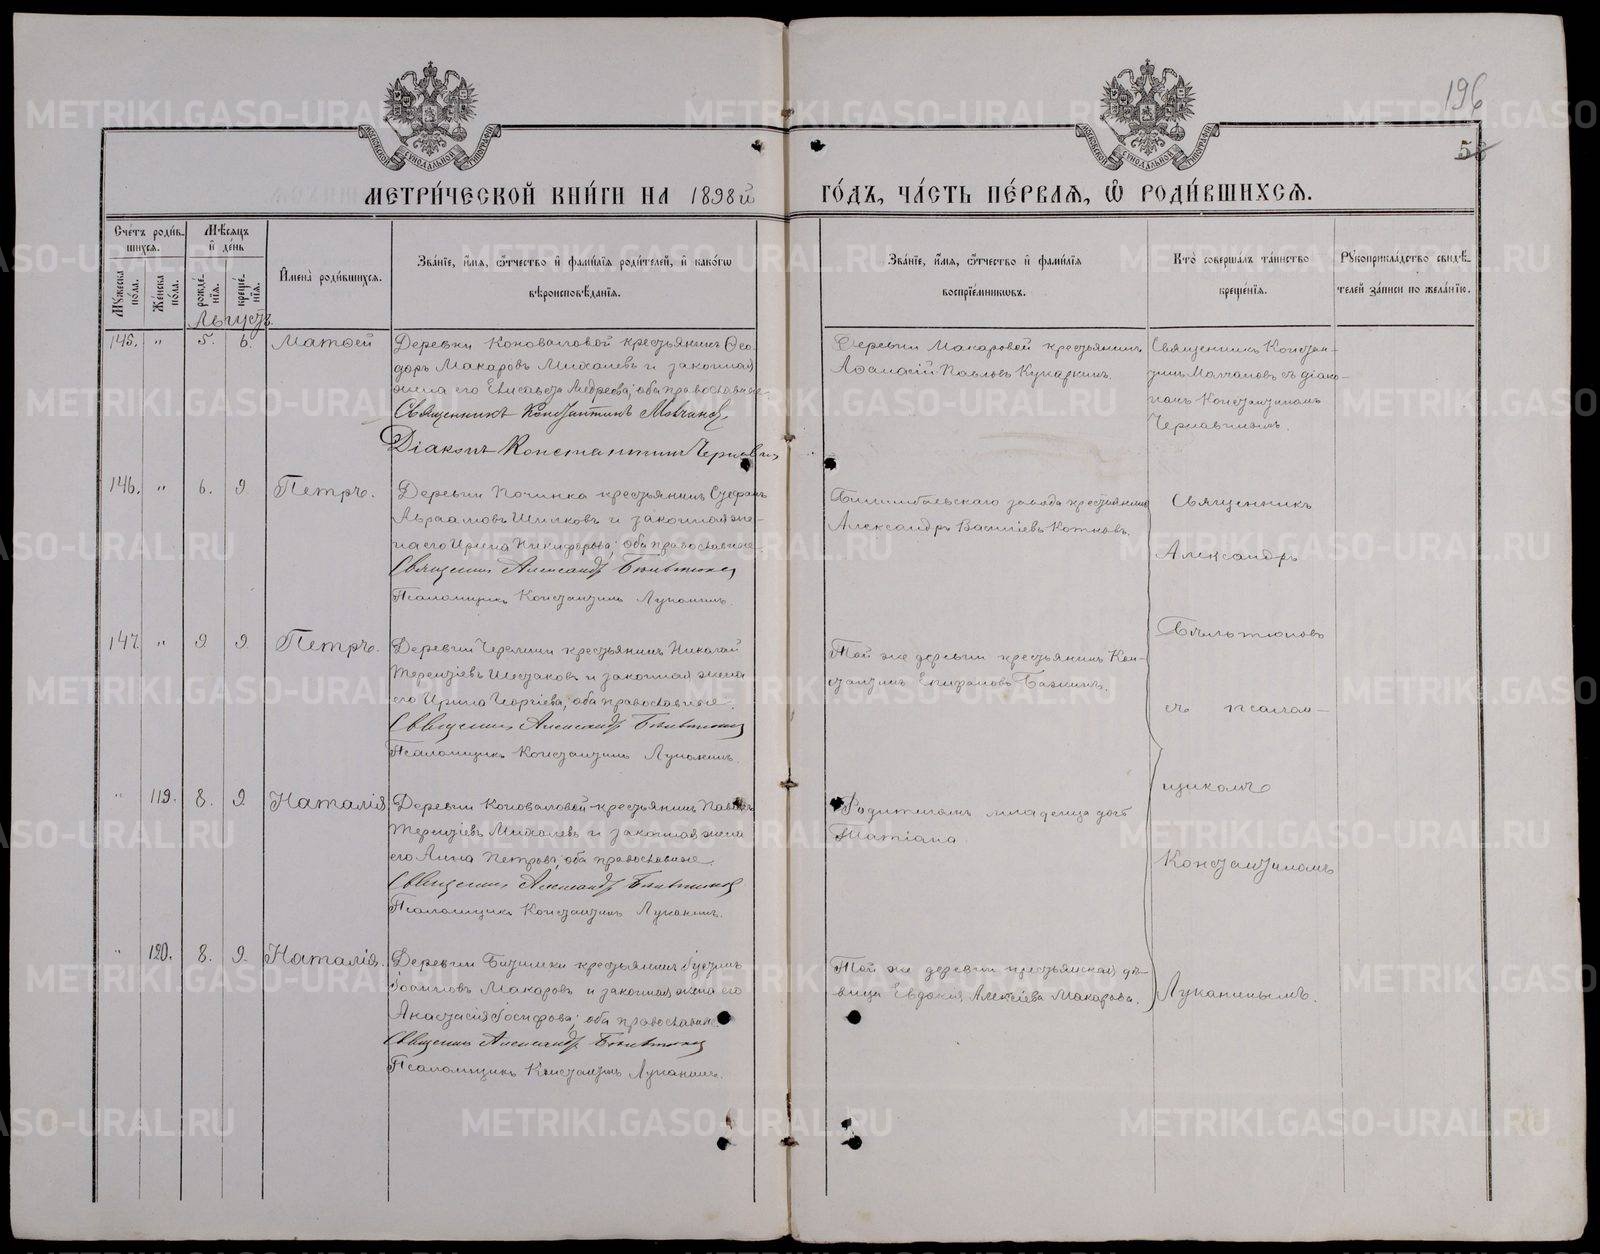 196
58
МЕТРИ́ЧЕСКОЙ КНИ́ГИ НА 1898й ГО́ДЪ, ЧА́СТЬ ПЕ́РВАЯ, Ѡ҆ РОДИ́ВШИХСЯ.
МОСКОВСКОЙ СѴНОДАЛЬНОЙ ТИПОГРАФІИ
МОСКОВСКОЙ СѴНОДАЛЬНОЙ ТИПОГРАФІИ
Сче́тъ роди́в-
шихся.
Мꙋ́жеска по́ла.
Же́нска по́ла.
Мѣ́сяцъ и҆ де́нь
рожде́-
нїя.
креще́-
нїя.
И҆мена̀ роди́вшихся.
Зва́нїе, и҆́мя, ѻ҆́тчество и҆ фами́лїя роди́телей, и҆ како́гѡ
вѣроисповѣ́данїя.
Зва́нїе, и҆́мя, ѻ҆́тчество и҆ фами́лїя
воспрїе́мникѡвъ.
Кто̀ соверша́лъ та́инство
креще́нїя.
Рꙋкоприкла́дство свидѣ́-
телей за́писи по жела́нїю.
Августъ.
145. " 5. 6. Матѳей
Деревни Коноваловой крестьянинъ Ѳео-
доръ Макаровъ Михалевъ и законная
жена его Елисавета Андреева; оба православные.
Священникъ Константинъ Молчановъ
Діаконъ Константинъ Чернавинъ
Деревни Макаровой крестьянинъ
Аѳанасій Павловъ Кукаркинъ.
Священникъ Констан-
тинъ Молчановъ съ діако-
номъ Константиномъ
Чернавинымъ.
146. " 6. 9. Петръ.
Деревни Починка крестьянинъ Стефанъ
Авраамовъ Шилковъ и законная же-
на его Ирина Никифорова; оба православные.
Священникъ Александръ Бѣльтюковъ
Псаломщикъ Константинъ Луканинъ.
Билимбаевскаго завода крестьянинъ
Александръ Василіевъ
Священникъ
Александръ
Бѣльтюковъ
съ псалом-
щикомъ
Константиномъ
Луканинымъ.
147. " 9 9. Петръ.
Деревни крестьянинъ Николай
Терентіевъ Шестаковъ и законная жена
его Ирина Георгіева; оба православные.
Священникъ Александръ Бѣльтюковъ
Псаломщикъ Константинъ Луканинъ.
Той же деревни крестьянинъ Кон-
стантинъ Епифановъ
" 119. 8. 9. Наталія
Деревни Коноваловой крестьянинъ Павелъ
Терентіевъ Михалевъ и законная жена
его Анна Петрова; оба православные.
Священникъ Александръ Бѣльтюковъ
Псаломщикъ Константинъ Луканинъ.
Родителямъ младенца дочь
Татіана.
" 120. 8. 9. Наталія.
Деревни крестьянинъ Іустинъ
Іоанновъ Макаровъ и законная жена его
Анастасія Іосифова; оба православные.
Священникъ Александръ Бѣльтюковъ
Псаломщикъ Константинъ Луканинъ.
Той же деревни крестьянская дѣ-
вица Евдокія Алексіева Макарова.
METRIKI.GASO-URAL.RU